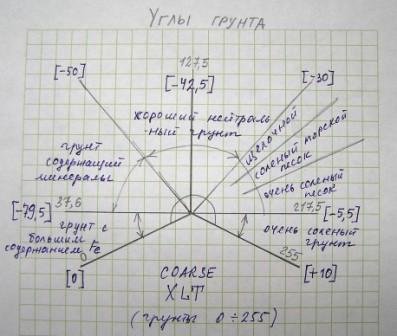 Углы грунта
127,5
[-50]
[-42,5]
[-30]
хороший нейтраль
ный грунт
щелочной
соленый морской
песок
очень соленый
песок
грунт
содержащий
минералы
[-79,5]
37,6
217,5
[-5,5]
грунт с
большим
содержанием Fe
очень соленый
грунт
0
255
[0]
[+10]
COARSE
XLT
(грунты 0÷255)